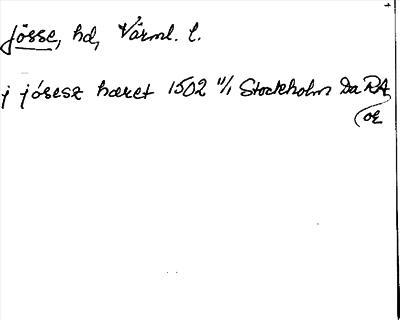 Jösse, hd, Värml. l.
j jösesz hæret 1502 11/1 Stockholm Da RA
OE